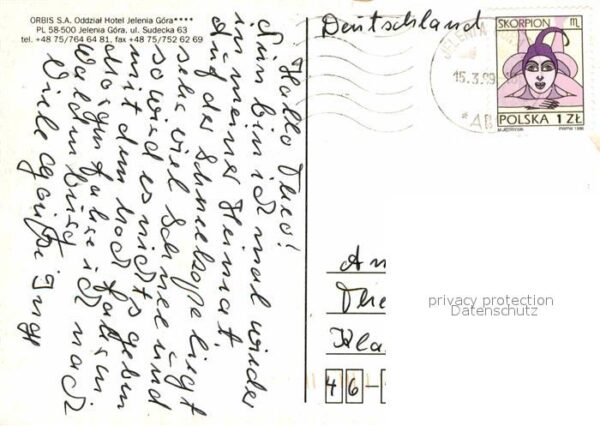 ORBIS S.A. Oddział Hotel Jelenia Góra****
PL 58-500 Jelenia Góra, ul. Sudecka 63
tel. +48 75/764 64 81, fax +48 75/752 62 69
Hallo Theo!
Nun bin ich mal wieder
in meiner Heimat.
Auf der Schneekoppe liegt
sehr viel Schnee und
so wird es nichts
mit dem hoch fahren
Morgen fahre ich nach
Waldenburg
Viele Grüße Inge
Deutschland
JELENIA
15.3.99
*AB
SKORPION
POLSKA 1 ZŁ
M.JĘDRYSIK
PWPW 1996
An
The
Kla
46-
privacy protection
Datenschutz